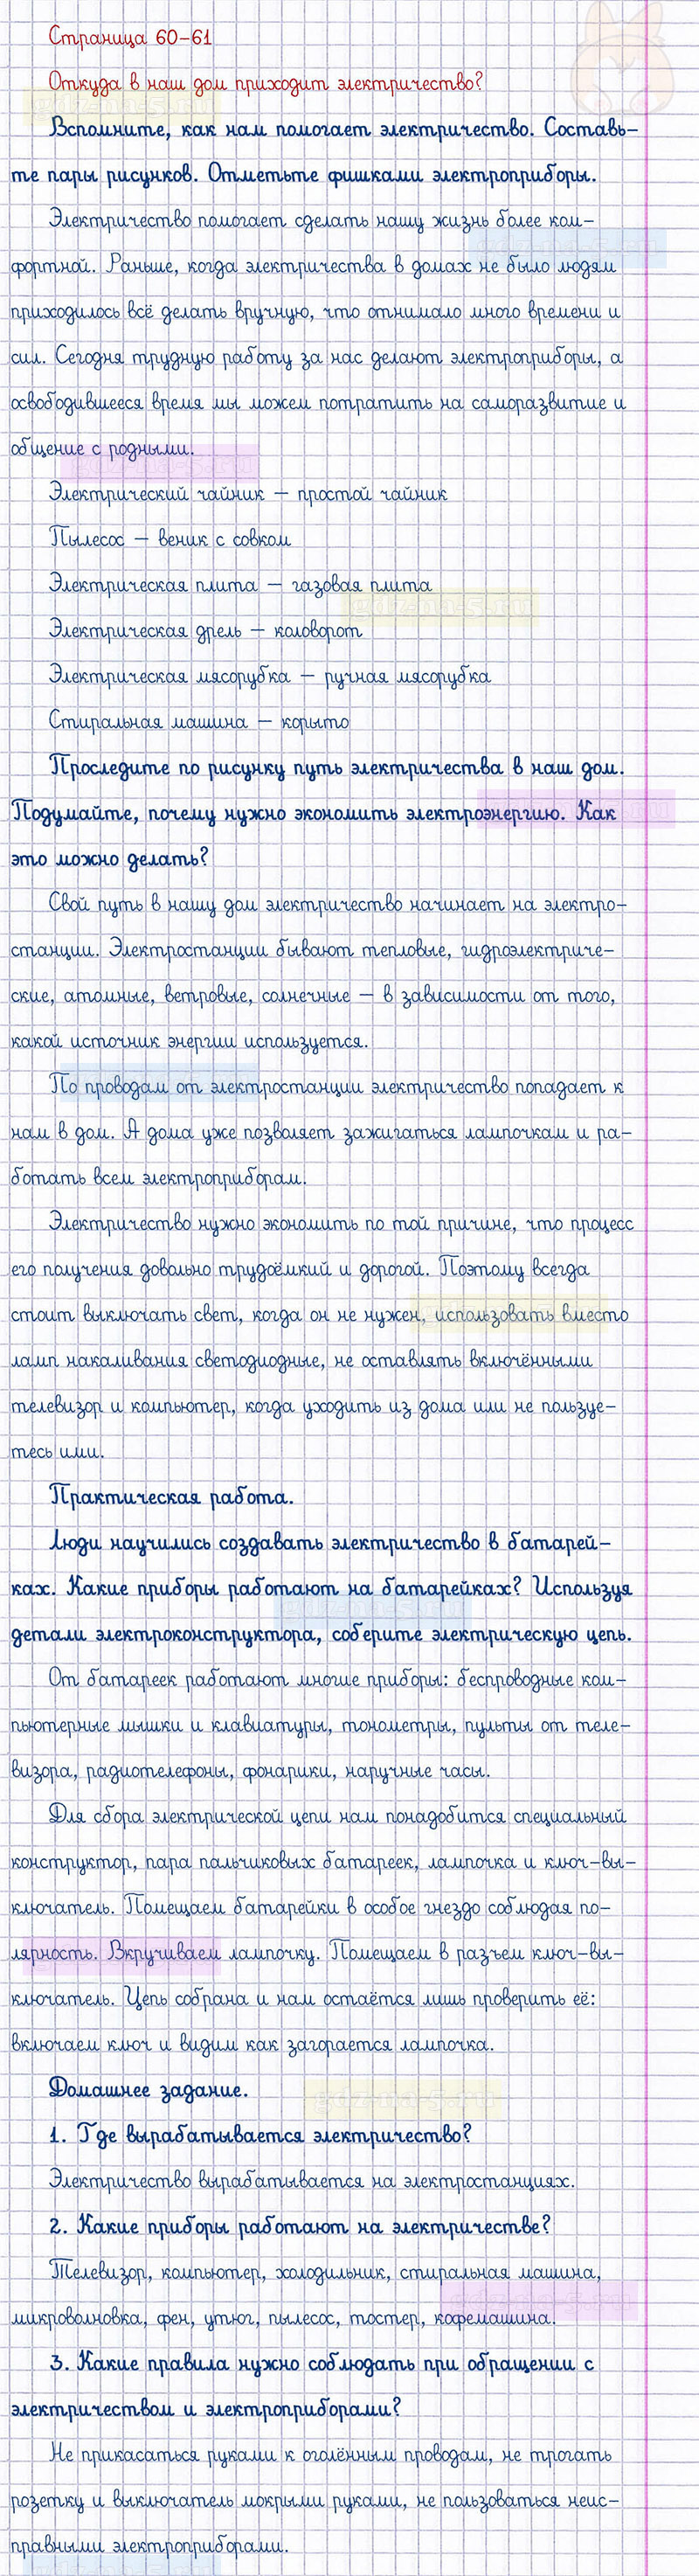 Страница 60-61
Откуда в наш дом приходит электричество?
Вспомните, как нам помогает электричество. Составь-
те пары рисунков. Отметьте фишками электроприборы.
Электричество помогает сделать нашу жизнь более ком-
фортной. Раньше, когда электричества в домах не было людям
приходилось всё делать вручную, что отнимало много времени и
сил. Сегодня трудную работу за нас делают электроприборы, а
освободившееся время мы можем потратить на саморазвитие и
общение с родными.
Электрический чайник – простой чайник
Пылесос – веник с совком
Электрическая плита – газовая плита
Электрическая дрель – коловорот
Электрическая мясорубка – ручная мясорубка
Стиральная машина – корыто
Проследите по рисунку путь электричества в наш дом.
Подумайте, почему нужно экономить электроэнергию. Как
это можно делать?
Свой путь в нашу дом электричество начинает на электро-
станции. Электростанции бывают тепловые, гидроэлектриче-
ские, атомные, ветровые, солнечные – в зависимости от того,
какой источник энергии используется.
По проводам от электростанции электричество попадает к
нам в дом. А дома уже позволяет зажигаться лампочкам и ра-
ботать всем электроприборам.
Электричество нужно экономить по той причине, что процесс
его получения довольно трудоёмкий и дорогой. Поэтому всегда
стоит выключать свет, когда он не нужен, использовать вместо
ламп накаливания светодиодные, не оставлять включёнными
телевизор и компьютер, когда уходить из дома или не пользуе-
тесь ими.
Практическая работа.
Люди научились создавать электричество в батарей-
ках. Какие приборы работают на батарейках? Используя
детали электроконструктора, соберите электрическую цепь.
От батареек работают многие приборы: беспроводные ком-
пьютерные мышки и клавиатуры, тонометры, пульты от теле-
визора, радиотелефоны, фонарики, наручные часы.
Для сбора электрической цепи нам понадобится специальный
конструктор, пара пальчиковых батареек, лампочка и ключ-вы-
ключатель. Помещаем батарейки в особое гнездо соблюдая по-
лярность. Вкручиваем лампочку. Помещаем в разъем ключ-вы-
ключатель. Цепь собрана и нам остаётся лишь проверить её:
включаем ключ и видим как загорается лампочка.
Домашнее задание.
1. Где вырабатывается электричество?
Электричество вырабатывается на электростанциях.
2. Какие приборы работают на электричестве?
Телевизор, компьютер, холодильник, стиральная машина,
микроволновка, фен, утюг, пылесос, тостер, кофемашина.
3. Какие правила нужно соблюдать при обращении с
электричеством и электроприборами?
Не прикасаться руками к оголённым проводам, не трогать
розетку и выключатель мокрыми руками, не пользоваться неис-
правными электроприборами.